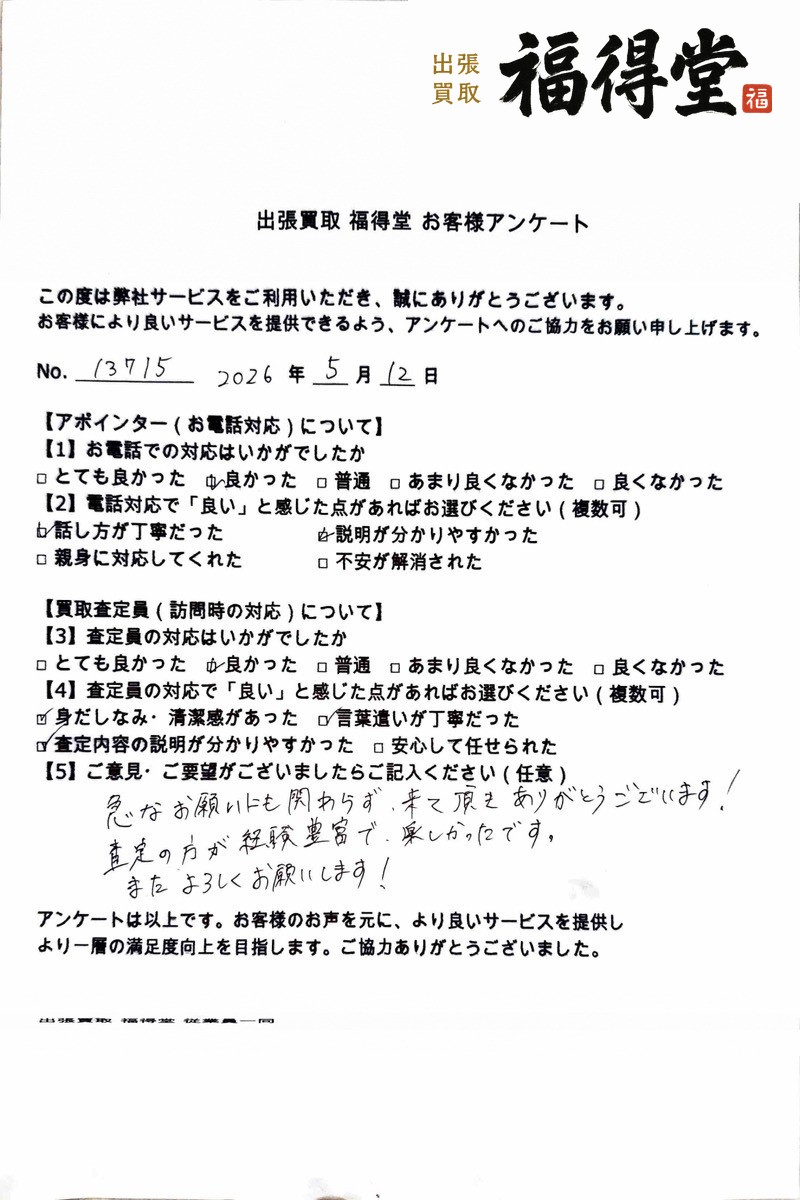 出張
買取
福得堂
福
出張買取 福得堂 お客様アンケート
この度は弊社サービスをご利用いただき、誠にありがとうございます。
お客様により良いサービスを提供できるよう、アンケートへのご協力をお願い申し上げます。
No. 13715 2026 年 5 月 12 日
【アポインター(お電話対応)について】
【1】お電話での対応はいかがでしたか
□ とても良かった ☑ 良かった □ 普通 □ あまり良くなかった □ 良くなかった
【2】電話対応で「良い」と感じた点があればお選びください(複数可)
☑ 話し方が丁寧だった ☑ 説明が分かりやすかった
□ 親身に対応してくれた □ 不安が解消された
【買取査定員(訪問時の対応)について】
【3】査定員の対応はいかがでしたか
□ とても良かった ☑ 良かった □ 普通 □ あまり良くなかった □ 良くなかった
【4】査定員の対応で「良い」と感じた点があればお選びください(複数可)
☑ 身だしなみ・清潔感があった ☑ 言葉遣いが丁寧だった
☑ 査定内容の説明が分かりやすかった □ 安心して任せられた
【5】ご意見・ご要望がございましたらご記入ください(任意)
急なお願いにも関わらず、来て頂きありがとうございます!
査定の方が経験豊富で、楽しかったです。
またよろしくお願いします!
アンケートは以上です。お客様のお声を元に、より良いサービスを提供し
より一層の満足度向上を目指します。ご協力ありがとうございました。
出張買取 福得堂 従業員一同